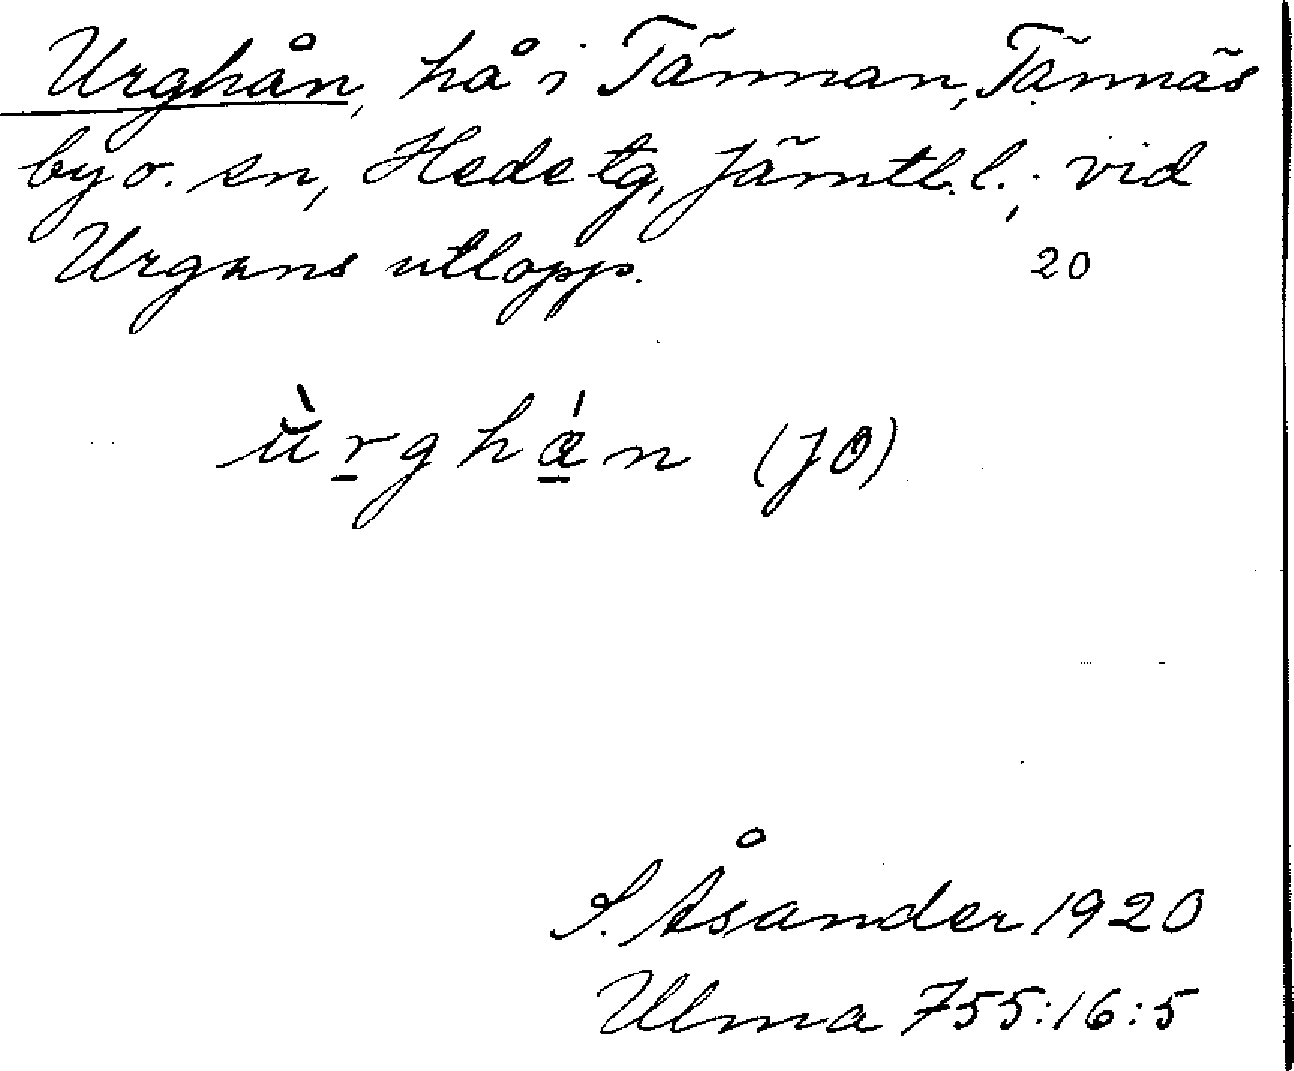 Urghån, hå i Tännan, Tännäs
by o. sn, Hede tg, Jämtl. l.; vid
Urgans utlopp. 20
ùrghán (JO)
S. Åsander 1920
Ulma 755:16:5